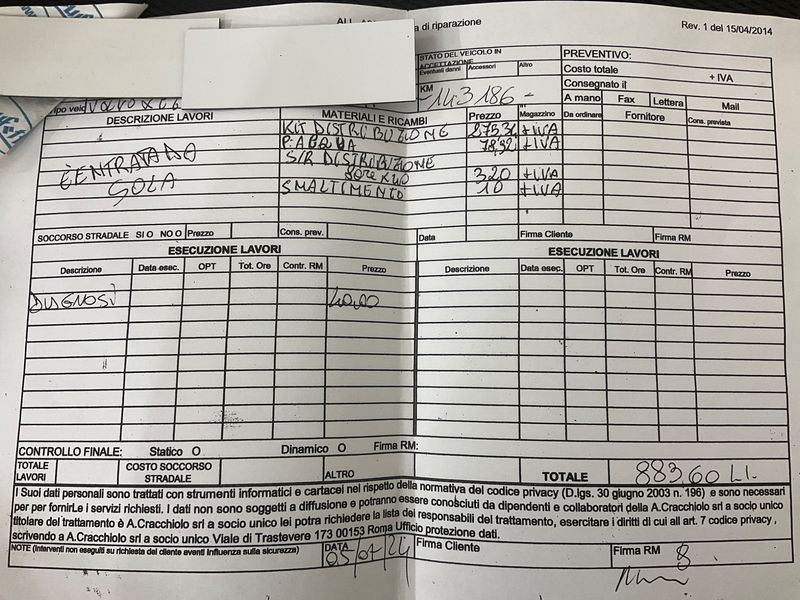 ALL.
a di riparazione
Rev. 1 del 15/04/2014
STATO DEL VEICOLO IN ACCETTAZIONE
Eventuali danni Accessori Altro
PREVENTIVO:
Costo totale + IVA
Consegnato il
KM -143186-
A mano Fax Lettera Mail
tipo veic VOLVO
DESCRIZIONE LAVORI MATERIALI E RICAMBI Prezzo Magazzino Da ordinare Fornitore Cons. prevista
KIT DISTRIBUZIONE +IVA
P. ACQUA 78,92 +IVA
S/R DISTRIBUZIONE
320 +IVA
SMALTIMENTO 10 +IVA
È ENTRATA DA
SOLA
SOCCORSO STRADALE SI O NO O Prezzo Cons. prev. Data Firma Cliente Firma RM
ESECUZIONE LAVORI ESECUZIONE LAVORI
Descrizione Data esec. OPT Tot. Ore Contr. RM Prezzo Descrizione Data esec. OPT Tot. Ore Contr. RM Prezzo
DIAGNOSI 40,00
CONTROLLO FINALE: Statico O Dinamico O Firma RM:
TOTALE LAVORI COSTO SOCCORSO STRADALE ALTRO TOTALE 883,60 I.I.
I Suoi dati personali sono trattati con strumenti informatici e cartacei nel rispetto della normativa del codice privacy (D.lgs. 30 giugno 2003 n. 196) e sono necessari
per per fornirLe i servizi richiesti. I dati non sono soggetti a diffusione e potranno essere conosciuti da dipendenti e collaboratori della A.Cracchiolo srl a socio unico
titolare del trattamento è A.Cracchiolo srl a socio unico lei potra richiedere la lista dei responsabili del trattamento, esercitare i diritti di cui all art. 7 codice privacy ,
scrivendo a A.Cracchiolo srl a socio unico Viale di Trastevere 173 00153 Roma Ufficio protezione dati.
NOTE (Interventi non eseguiti su richiesta del cliente aventi influenza sulla sicurezza) DATA 05/07/24 Firma Cliente Firma RM